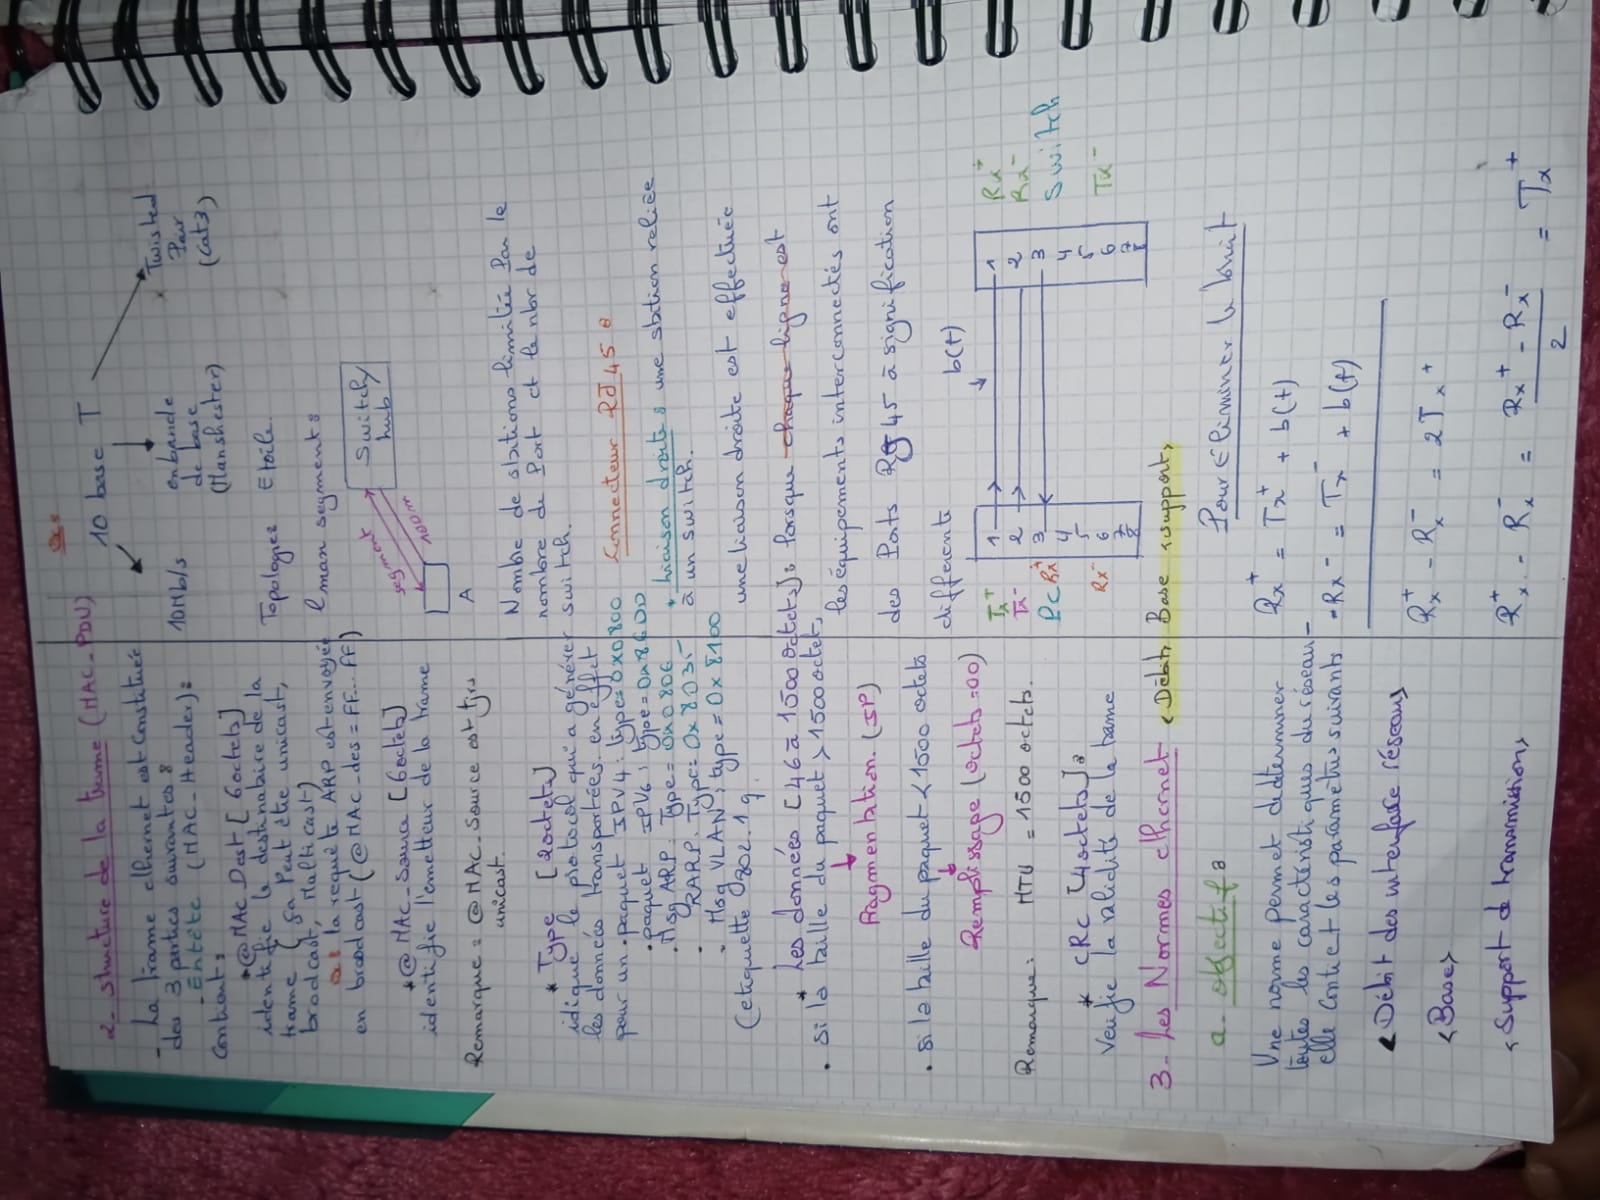 2- structure de la trame (MAC-PDU)
- La trame ethernet est constituée
des 3 parties suivantes :
- Entête (MAC-Header):
Contient :
*@MAC Dest [6octets]
identifie le destinataire de la
trame ( ça Peut être unicast,
brodcast, Multicast)
la requête ARP est envoyée
en broadcast (@MAC-des = FF...FF)
*@ MAC-Source [6octets]
identifie l'emetteur de la trame
Remarque : @MAC-Source est tjrs
unicast.
* Type [2octets]
idique le protocol qui a générer
les données transportées. en effet
pour un .paquet IPV4: type=0x0800
.paquet IPV6 ; type=0x8600
.Msg ARP: Type=0x0806
. RARP. Type= 0x8035
. Msg VLAN ; type = 0x8100
(etiquette 802.1q
* Les données [46 à 1500 octets]:
. si la taille du paquet > 1500 octets
↓
Fragmentation. (IP)
. si la taille du paquet < 1500 octets
↓
Remplissage (octets=00)
Remarque: MTU = 1500 octets.
* CRC [4octets]:
Verifie la validité de la trame
3- Les Normes ethernet <Débit> Base <support>
a- objectif :
Une norme permet de determiner
toutes les caractéristiques du réseau-
elle contiet les parametres suivants
<Débit des interface réseau>
<Base>
<Support de transmission>
ex:
10 base T
10Mb/s
en bande
de base
(Manshester)
Twisted
Pair
(Cat3)
Topologie: Etoile.
lmax segment:
segment
100m
Switch/
hub
A
Nombre de stations limitée Par le
nombre de Port et le nbr de
switch.
Connecteur RJ45 :
* Liaison droite : une station reliée
à un switch.
une liaison droite est effectuée
lorsque chaque ligne est
les équipements interconnectés ont
des Ports RJ45 à signification
differente
b(t)
Tx+ 1 1 Rx+
Tx- 2 2 Rx-
PC Rx+ 3 3 Switch
4 4
5 5
Rx- 6 6 Tx-
7 7
8 8
Pour Eliminer le bruit
Rx+ = Tx+ + b(t)
-Rx- = Tx- + b(t)
Rx+ - Rx- = 2Tx+
Rx+ - Rx- = Rx+ - Rx- / 2 = Tx+